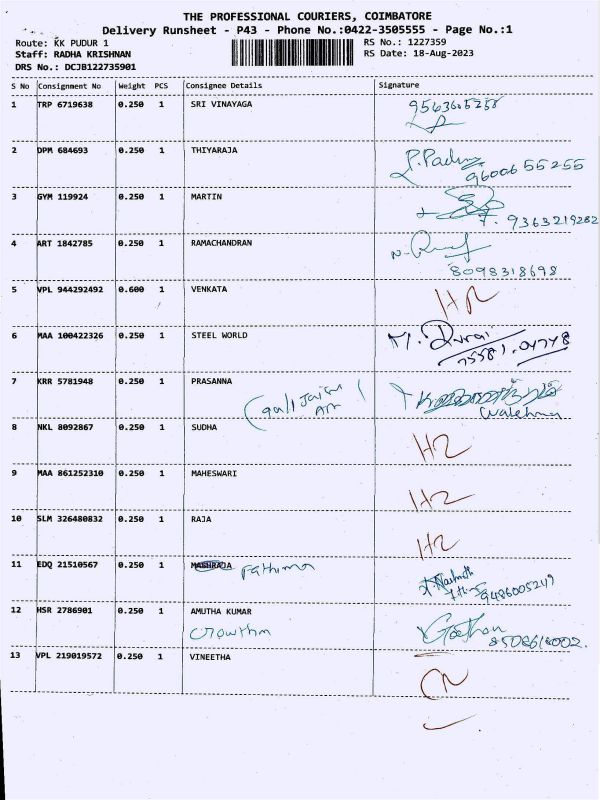 THE PROFESSIONAL COURIERS, COIMBATORE
Delivery Runsheet - P43 - Phone No.:0422-3505555 - Page No.:1
Route: KK PUDUR 1 RS No.: 1227359
Staff: RADHA KRISHNAN RS Date: 18-Aug-2023
DRS No.: DCJB122735901
S No Consignment No Weight PCS Consignee Details Signature
1 TRP 6719638 0.250 1 SRI VINAYAGA 9563605258
2 DPM 684693 0.250 1 THIYARAJA 9600655255
3 GYM 119924 0.250 1 MARTIN 9363219282
4 ART 1842785 0.250 1 RAMACHANDRAN
8098318698
5 VPL 944292492 0.600 1 VENKATA
6 MAA 100422326 0.250 1 STEEL WORLD
7 KRR 5781948 0.250 1 PRASANNA
8 NKL 8092867 0.250 1 SUDHA
9 MAA 861252310 0.250 1 MAHESWARI
10 SLM 326480832 0.250 1 RAJA
11 EDQ 21510567 0.250 1 MASHRAJA Fathima
9486005249
12 HSR 2786901 0.250 1 AMUTHA KUMAR
8508618002.
13 VPL 219019572 0.250 1 VINEETHA